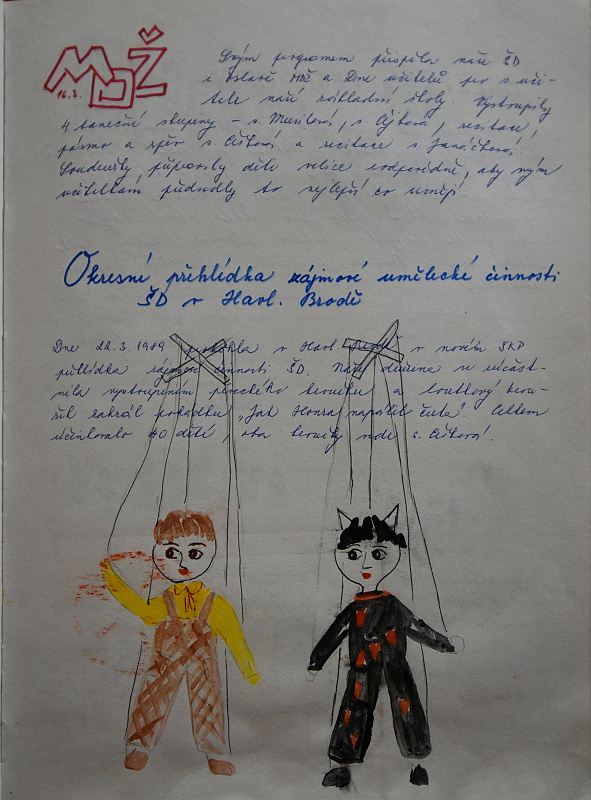 MDŽ
16.3.
Svým programem přispěla naše ŠD
k oslavě MDŽ a Dne učitelů pro s. uči-
tele naší základní školy. Vystoupily
4 taneční skupiny - s. Musilová, s. recitace,
pásmo a zpěv s. Čížková a recitace s. Janáčková.
Soudružky připravily děti velice zodpovědně, aby svým
učitelkám předvedly to nejlepší co umějí.
Okresní přehlídka zájmové umělecké činnosti
ŠD v Havl. Brodě
Dne 22.3.1989 proběhla v Havl. Brodě v novém SKP
přehlídka zájm. činnosti ŠD. Naše družina se účast-
nila vystoupením pěveckého kroužku a loutkový krou-
žek zahrál pohádku „Jak Honza napálil čerta". Celkem
účinkovalo 40 dětí, oba kroužky vede s. Čížková.